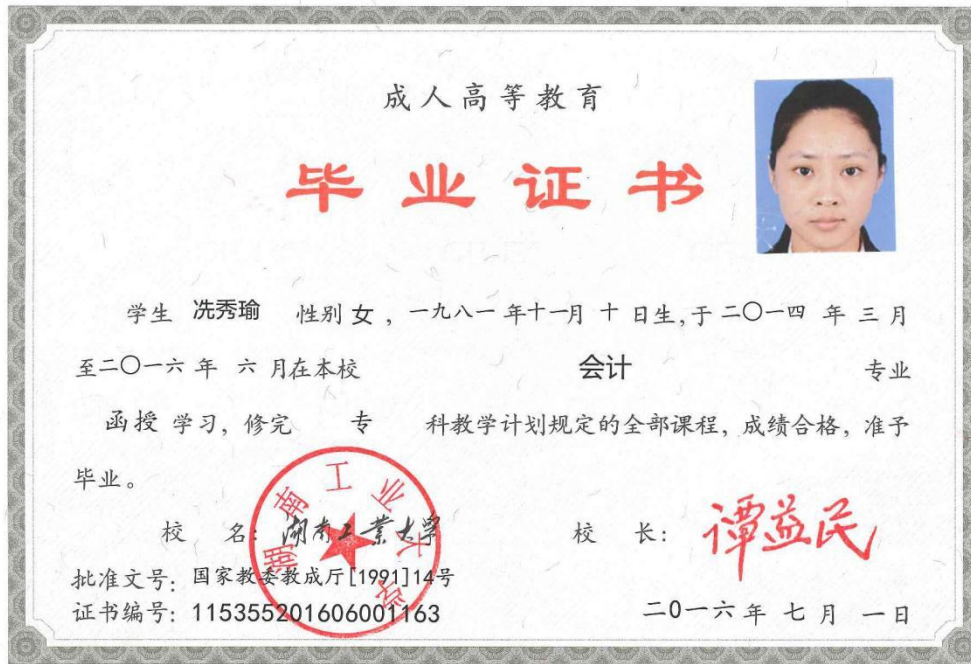 成人高等教育
毕业证书
学生 冼秀瑜 性别 女 ，一九八一 年十一月 十 日生,于 二〇一四 年 三 月
至二〇一六 年 六 月在本校 会计 专业
函授 学习，修完 专 科教学计划规定的全部课程，成绩合格，准予
毕业。
校 名：湖南工业大学 校 长：谭益民
湖南工业大学
批准文号：国家教委教成厅[1991]14号
证书编号：115355201606001163 二0一六 年 七 月 一 日